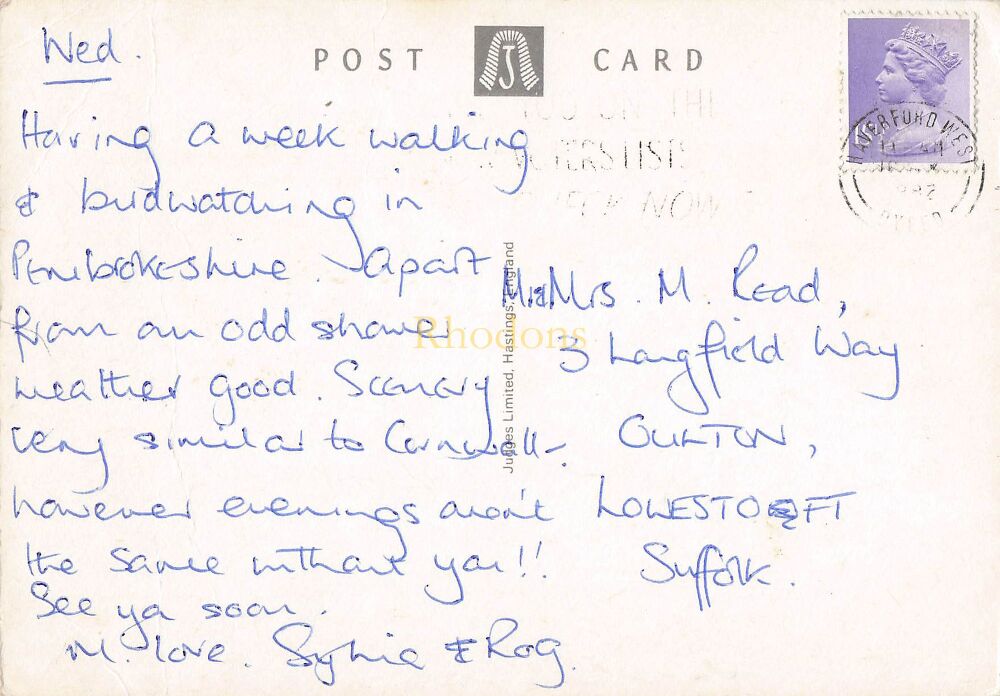 Wed.
POST CARD
Having a week walking
& birdwatching in
Pembrokeshire. Apart
from an odd shower
weather good. Scenery
very similar to Cornwall -
however evenings aren't
the same without you!!
See ya soon.
M. love. Sylvia & Rog.
Mr & Mrs. M. Read,
3 Langfield Way
OULTON,
LOWESTOFT
Suffolk.
Judges Limited, Hastings, England
HAVERFORDWEST
VOTERS LIST
NOW
Rhodons